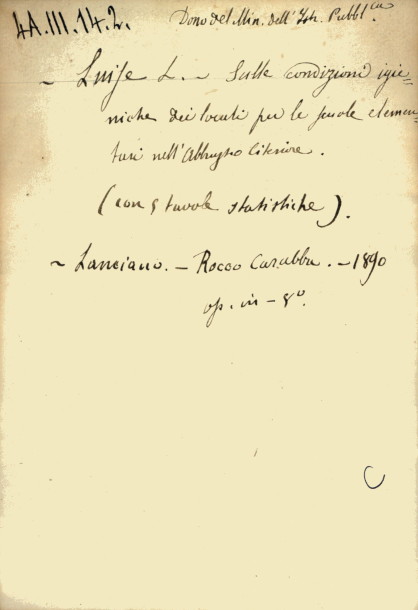 4A.III.14.2.
Dono del Min. dell'Istr. Pubbl.ca
~ Luise L. ~ Sulle condizioni igie=
niche dei locali per le scuole elemen=
tari nell'Abbruzzo Citeriore.
(con 5 tavole statistiche).
~ Lanciano. – Rocco Carabba. – 1890
op. in – 8°.
C